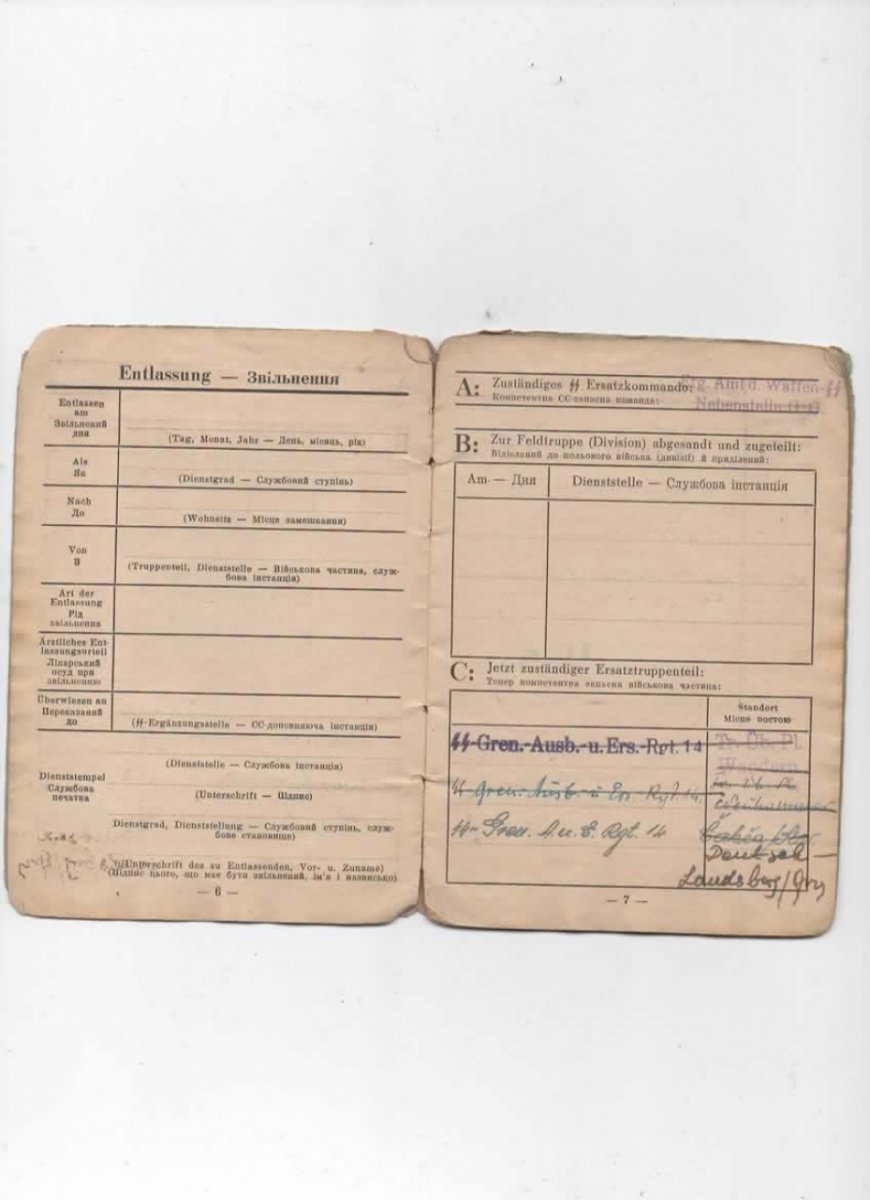 Entlassung — Звільнення
Entlassen
am
Звільнений
дня
(Tag, Monat, Jahr — День, місяць, рік)
Als
Як
(Dienstgrad — Службовий ступінь)
Nach
До
(Wohnsitz — Місце замешкання)
Von
В
(Truppenteil, Dienststelle — Військова частина, служ-
бова інстанція)
Art der
Entlassung
Рід
звільнення
Ärztliches Ent-
lassungsurteil
Лікарський
осуд при
звільненню
Überwiesen an
Переказаний
до
(ᛋᛋ-Ergänzungsstelle — СС-доповняюча інстанція)
(Dienststelle — Службова інстанція)
Dienststempel
Службова
печатка
(Unterschrift — Підпис)
Dienstgrad, Dienststellung — Службовий ступінь, служ-
бове становище)
(Unterschrift des zu Entlassenden, Vor- u. Zuname)
(Підпис цього, що має бути звільнений, ім'я і назвисько)
— 6 —
A: Zuständiges ᛋᛋ Ersatzkommando: Erg. Amt d. Waffen-ᛋᛋ
Компетентна СС-запасна команда: Nebenstelle
B: Zur Feldtruppe (Division) abgesandt und zugeteilt:
Відісланий до польового війська (дивізії) й приділений:
Am — Дня
Dienststelle — Службова інстанція
C: Jetzt zuständiger Ersatztruppenteil:
Тепер компетентна запасна військова частина:
Standort
Місце постою
ᛋᛋ-Gren.-Ausb.-u. Ers.-Rgt. 14
Tr. Üb. Pl.
Wandern
ᛋᛋ-Gren. Ausb. u Ers Rgt. 14
Tr. Üb. Pl.
Neuhammer
ᛋᛋ-Gren. A u. E. Rgt. 14
Deutsch —
Landsberg/
— 7 —